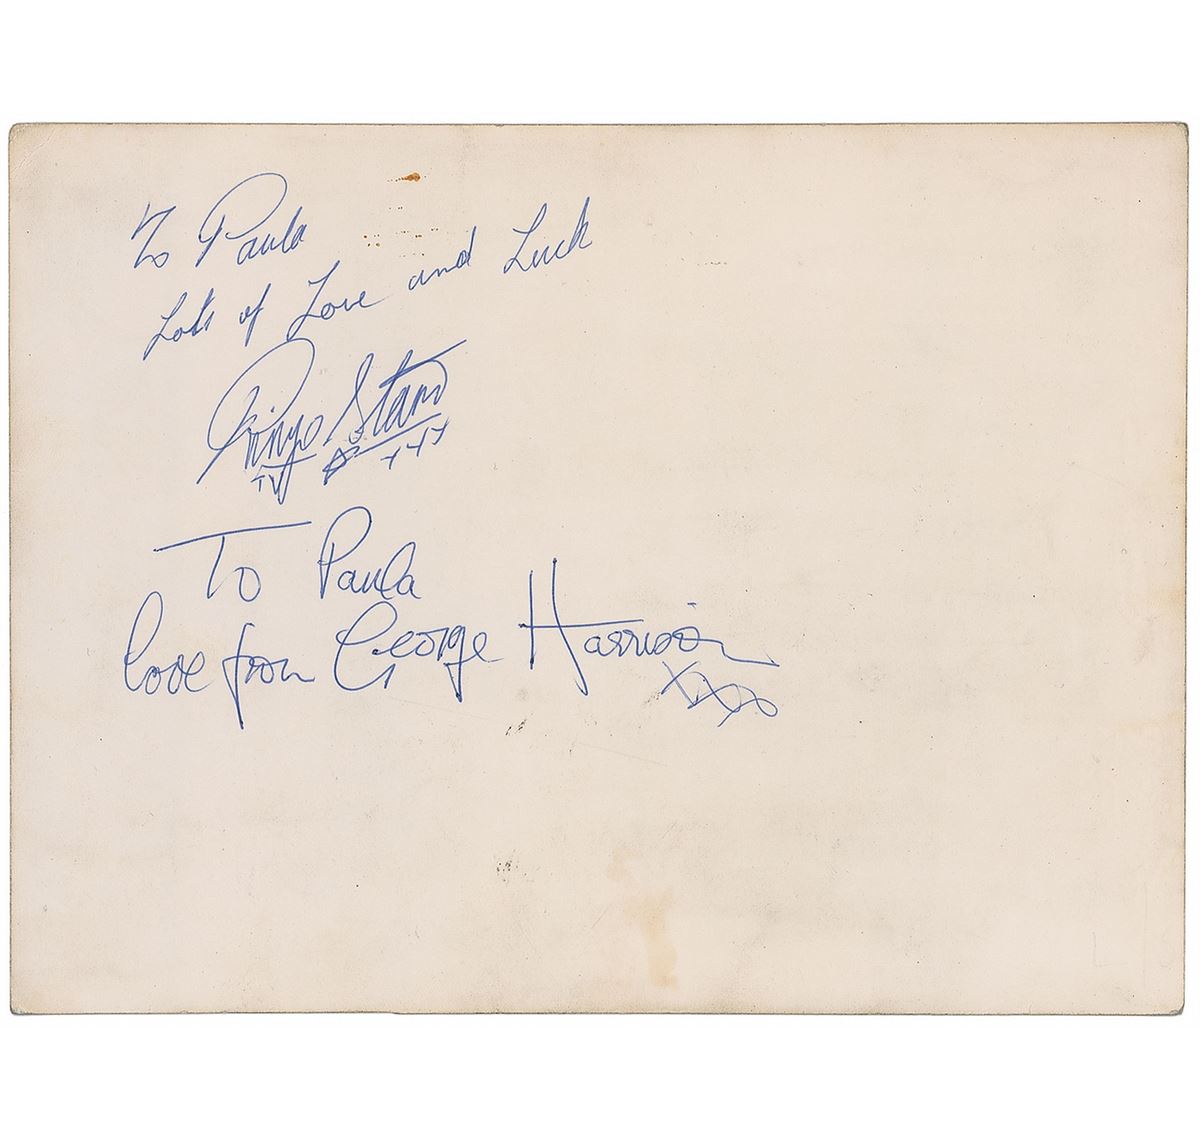 To Paula
Lots of Love and Luck
Ringo Starr
xxx
To Paula
love from George Harrison
xxx